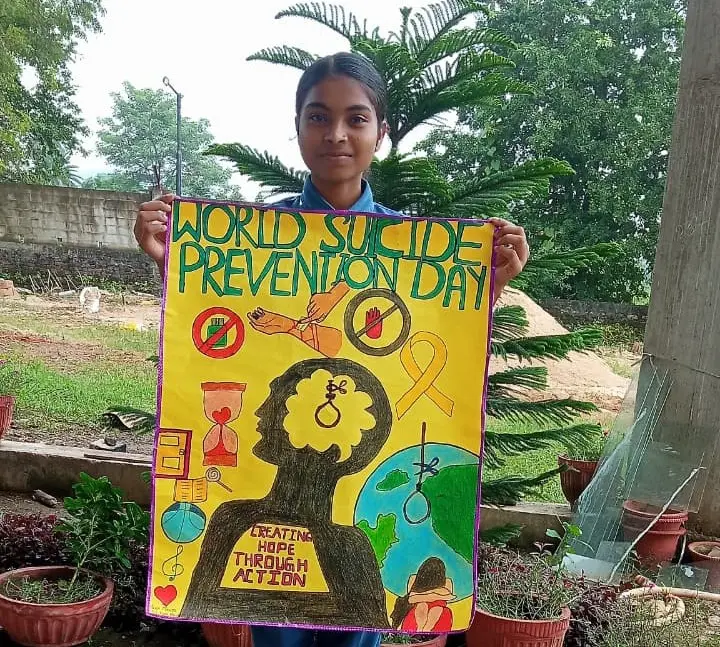 WORLD SUICIDE
PREVENTION DAY
CREATING
HOPE
THROUGH
ACTION